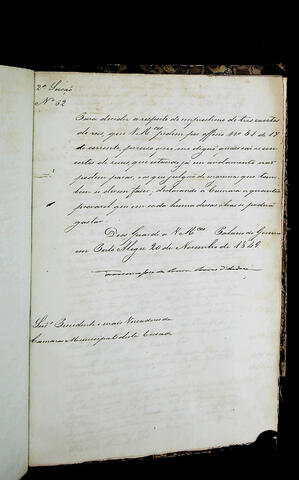 2ª Secção
Nº 52
Para decidir a respeito do emprestimo de tres contos
de reis, que V.Mcês pedem por officio Nº 51 de 17
do corrente, preciso que me digão quaes são os con-
certos de ruas, que estando já em andamento não
podem parar, e os que julgão de maneira que tam-
bem se devem fazer, declarando a Camara a quantia
provavel que em cada huma dessas obras se poderá
gastar.
Deos Guarde a V.Mcês Palacio do Governo
em Porto Alegre 20 de Novembro de 1849
Snrs. Presidente e mais Vereadores da
Camara Municipal desta Cidade